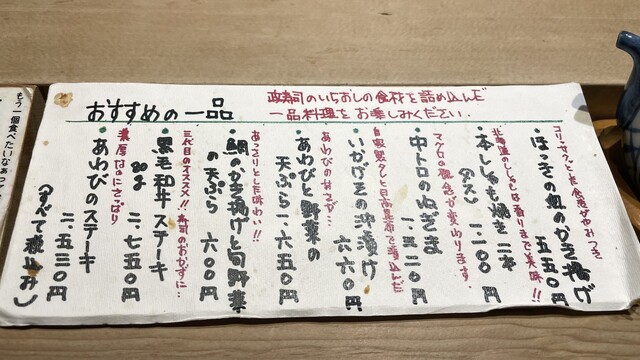 おすすめの一品
政寿司のいちおしの食材を詰め込んだ
一品料理をお楽しみください.
コリッサクッとした食感がやみつき
・ほっきの紐のかき揚げ
五五〇円
北海道のししゃもは香りまで美味!!
・本ししゃも焼き二本
(オス)
一.二〇〇円
マグロの概念が変わります.
・中トロのぬぎま
一.三二〇円
・いかげその沖漬け
六六〇円
あわびの甘さが…
・あわびと野菜の
天ぷら 一.六五〇円
あっさりとした味わい!!
・鯛のかき揚げと旬野菜
の天ぷら 六〇〇円
三代目のイチオシ!!寿司のおかずに…
・黒毛和牛ステーキ
80g
二、七五〇円
濃厚なのにさっぱり
・あわびのステーキ
二、五三〇円
(すべて税込み)
もう一個食べたいなぁって